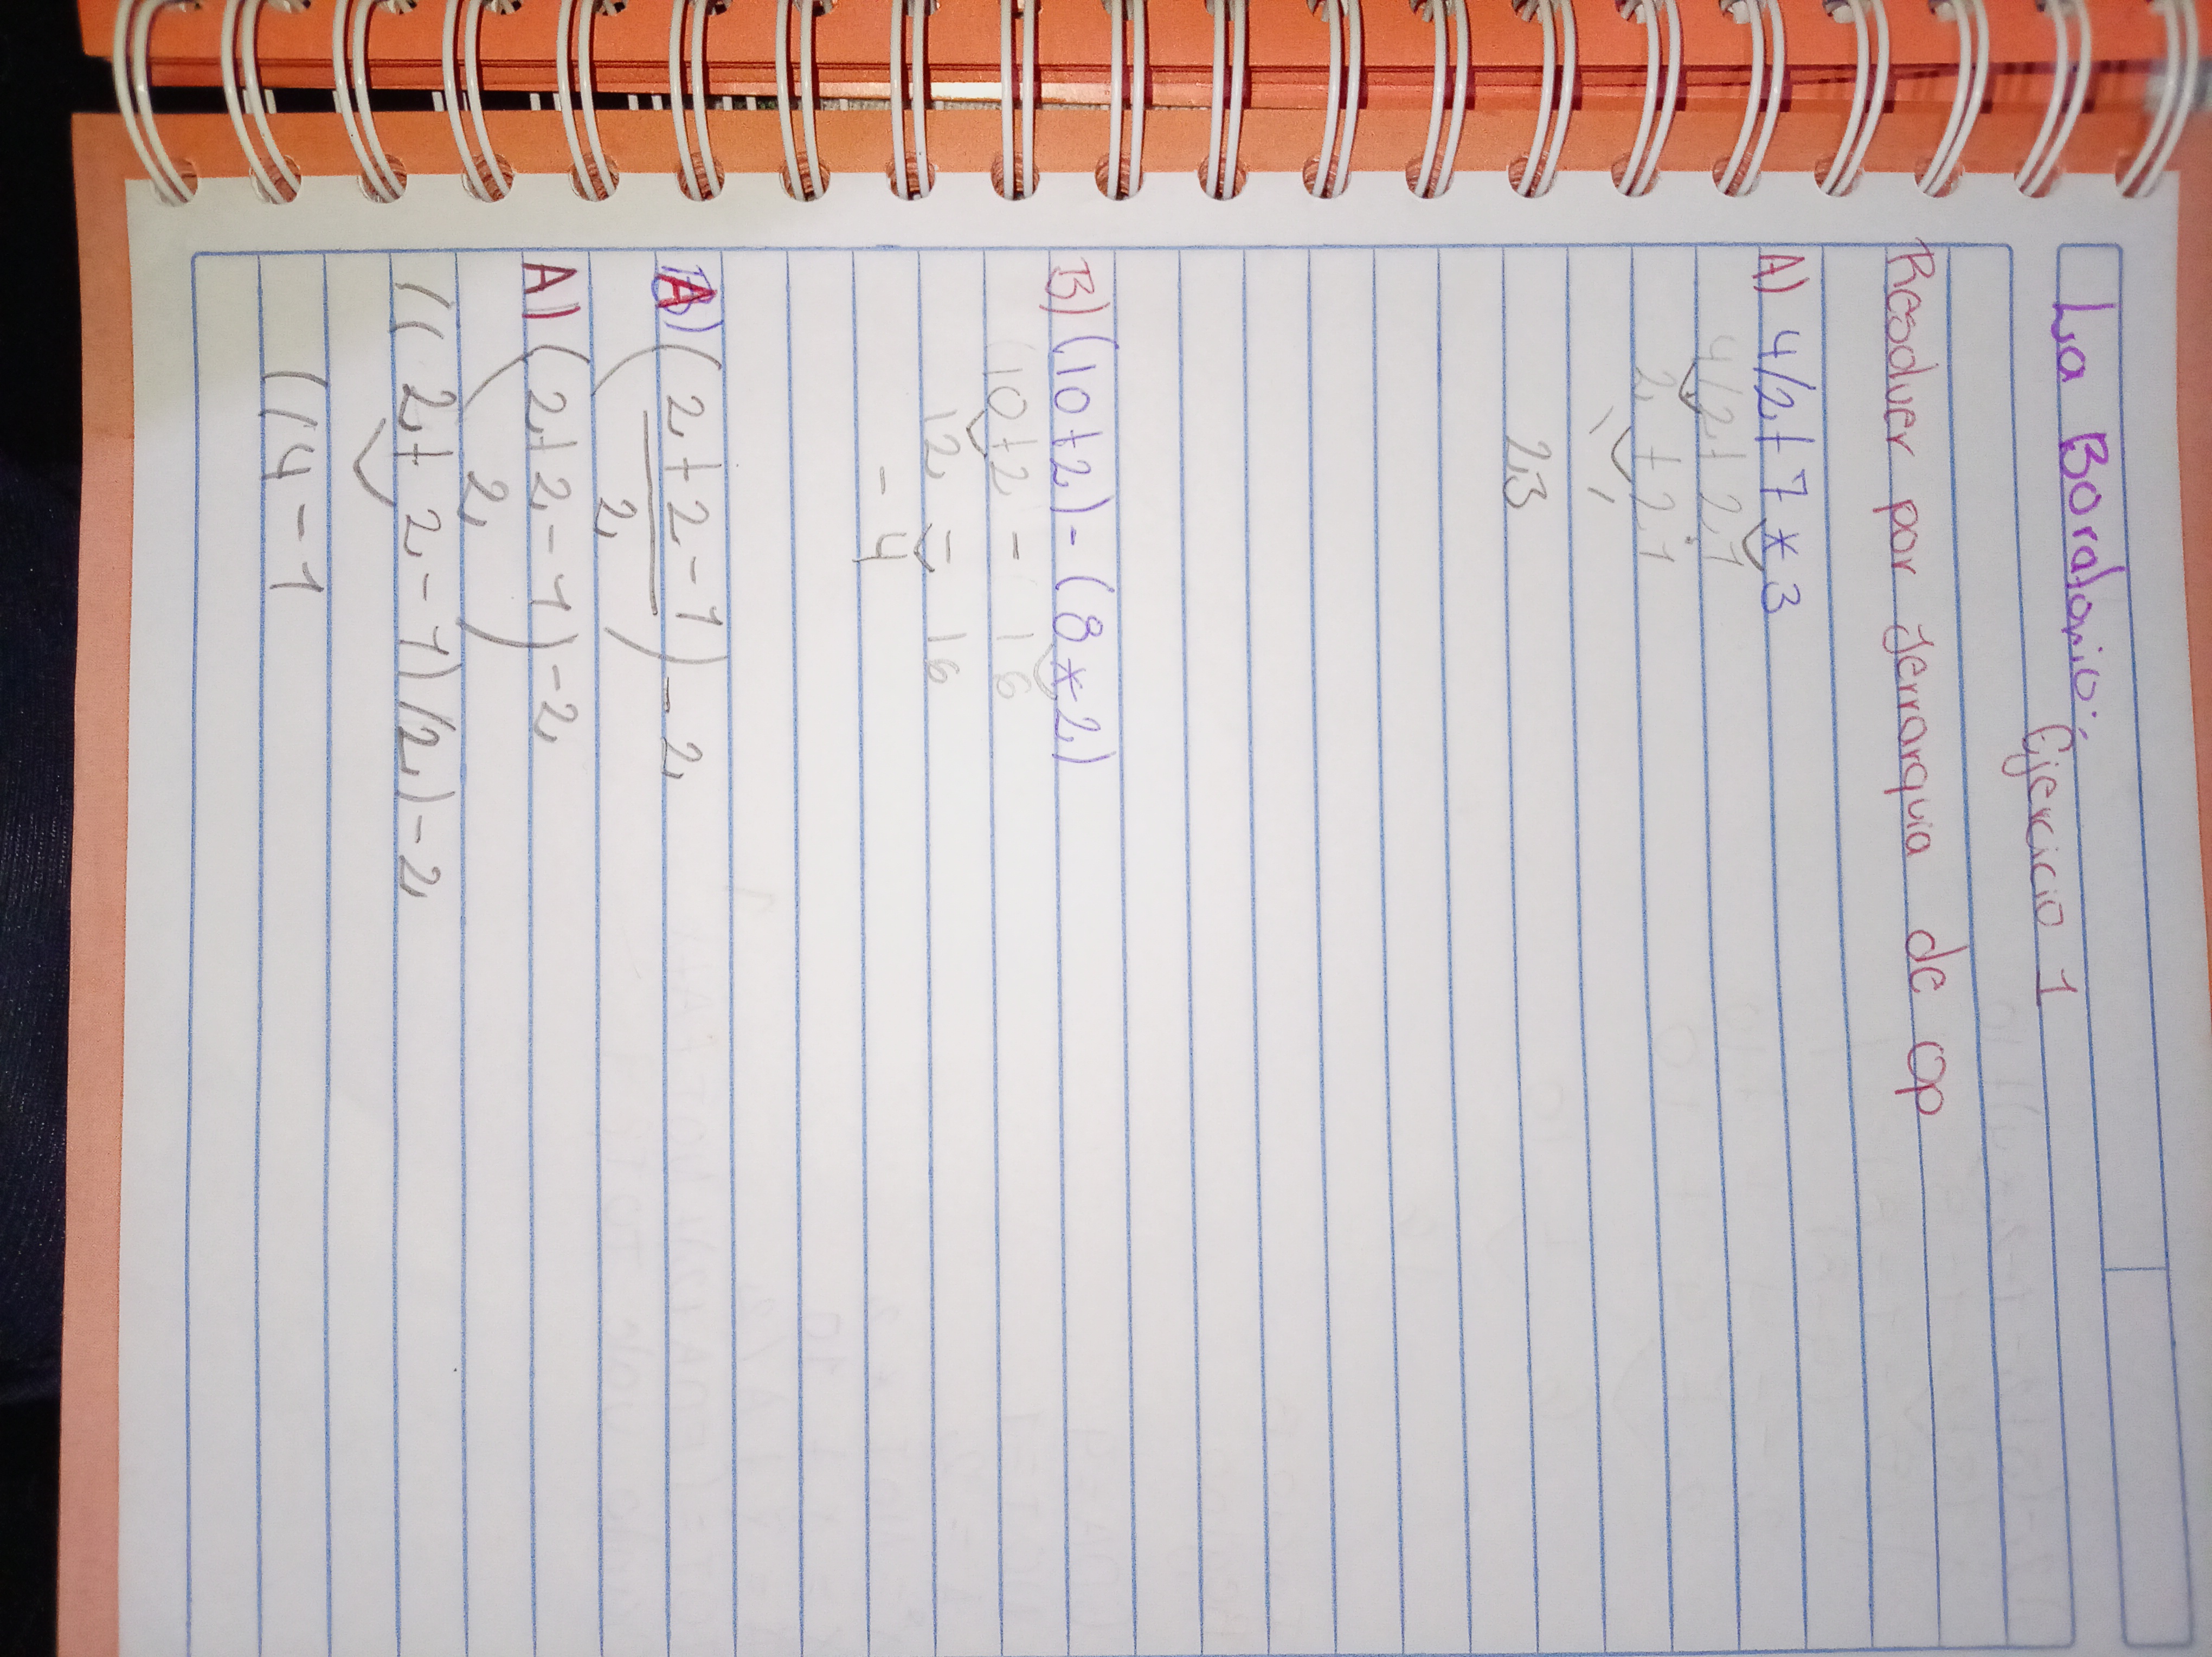 La Boratorio:
Ejercicio 1
Resolver por Jerrarquia de op
A) 4/2+7*3
4/2+21
2+21
23
B) (10+2)-(8*2)
(10+2 - 16
12 - 16
-4
A) (2+2-1) - 2
2
A) (2+2-1) -2
2
(( 2+ 2-1)/2)-2
((4-1